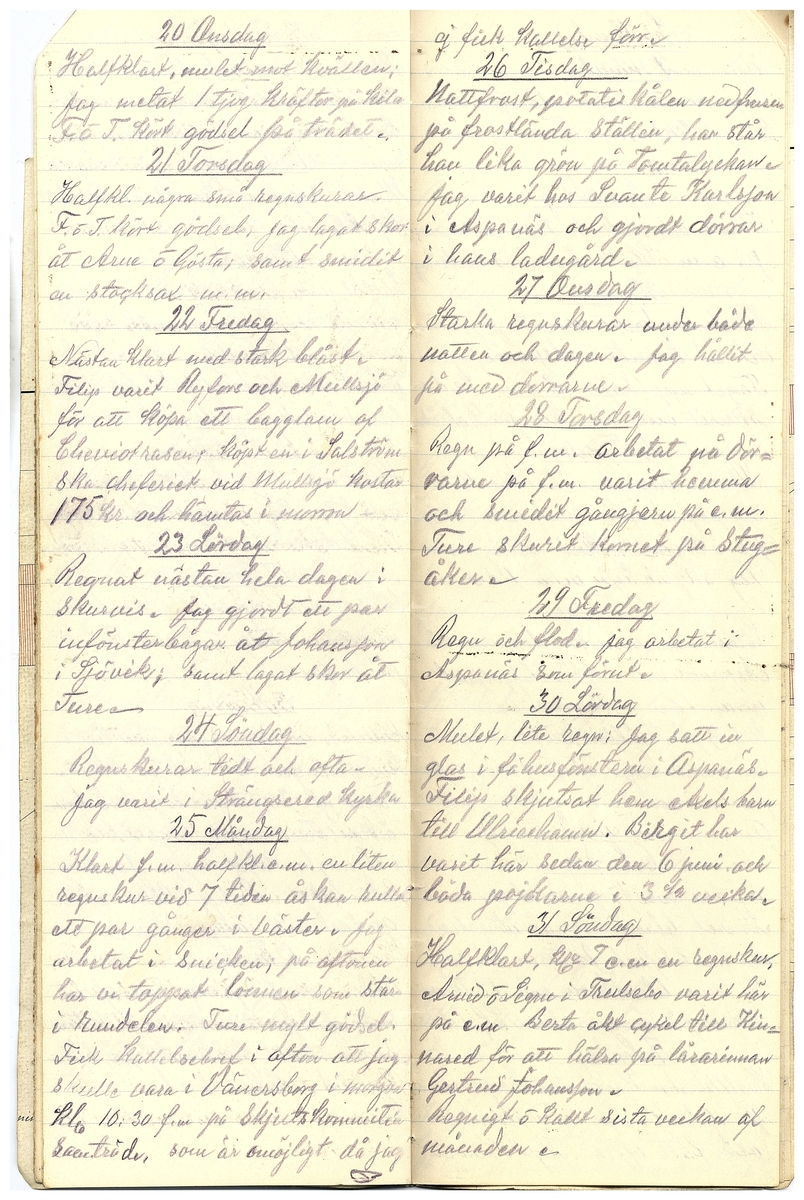 20 Onsdag
Halfklart, mulet mot kvällen;
jag metat 1 tjog kräftor på Kila
F. ö T. kört gödsel på trädet.
21 Torsdag
Halfkl. några små regnskurar.
F. ö T. kört gödsel, jag lagat skor
åt Arne ö Gösta, samt smidit
en stocksax m.m.
22 Fredag
Nästan klart med stark blåst.
Filip varit Ryfors och Mullsjö
för att köpa ett bagglam af
Cheviotrasen, köpt en i Salström
ska cheferiet vid Mullsjö kostar
175 kr och hämtas i morron
23 Lördag
Regnat nästan hela dagen i
skurvis. Jag gjordt ett par
infönsterbågar åt Johansson
i Sjövik; samt lagat skor åt
Ture
24 Söndag
Regnskurar tidt och ofta.
jag varit i Strängsered kyrka
25 Måndag
Klart f.m. halfkl. e.m. en liten
regnskur vid 7 tiden åskan rullat
ett par gånger i väster. Jag
arbetat i snicken; på aftonen
har vi toppat lönnen som står
i rundelen. Ture mylt gödsel.
Fick kallelsebref i afton att jag
skulle vara i Vänersborg i morgon
Kl. 10:30 f.m. på Skjutskommitén
samträde, som är omöjligt då jag
ej fick kallelse förr.
26 Tisdag
Nattfrost, potatiskålen nedfrusen
på frostlända ställen, har står
han lika grön på Tomtalyckan.
Jag varit hos Svante Karlsson
i Aspanäs och gjordt dörrar
i hans ladugård.
27 Onsdag
Starka regnskurar under både
natten och dagen. jag hållit
på med dörrarne.
28 Torsdag
Regn på f.m. arbetat på dör=
rarne på f.m. varit hemma
och smidit gångjern på e.m.
Ture skurit kornet på Stug=
åker.
29 Fredag
Regn och flod. jag arbetat i
Aspanäs som förut.
30 Lördag
Mulet, lite regn; jag satt in
glas i fähusfönstern i Aspanäs.
Filip skjutsat hem Axels barn
till Ulricehamn. Birgit har
varit här sedan den 6 juni och
båda pojkarne i 3 1/2 vecka.
31 Söndag
Halfklart, Kl. 7 e.m en regnskur,
Arvid ö Signe i Trulsebo varit här
på e.m. Berta åkt cykel till Kin=
nared för att hälsa på lärarinnan
Gertrud Johansson.
Regnigt ö kallt sista veckan af
månaden